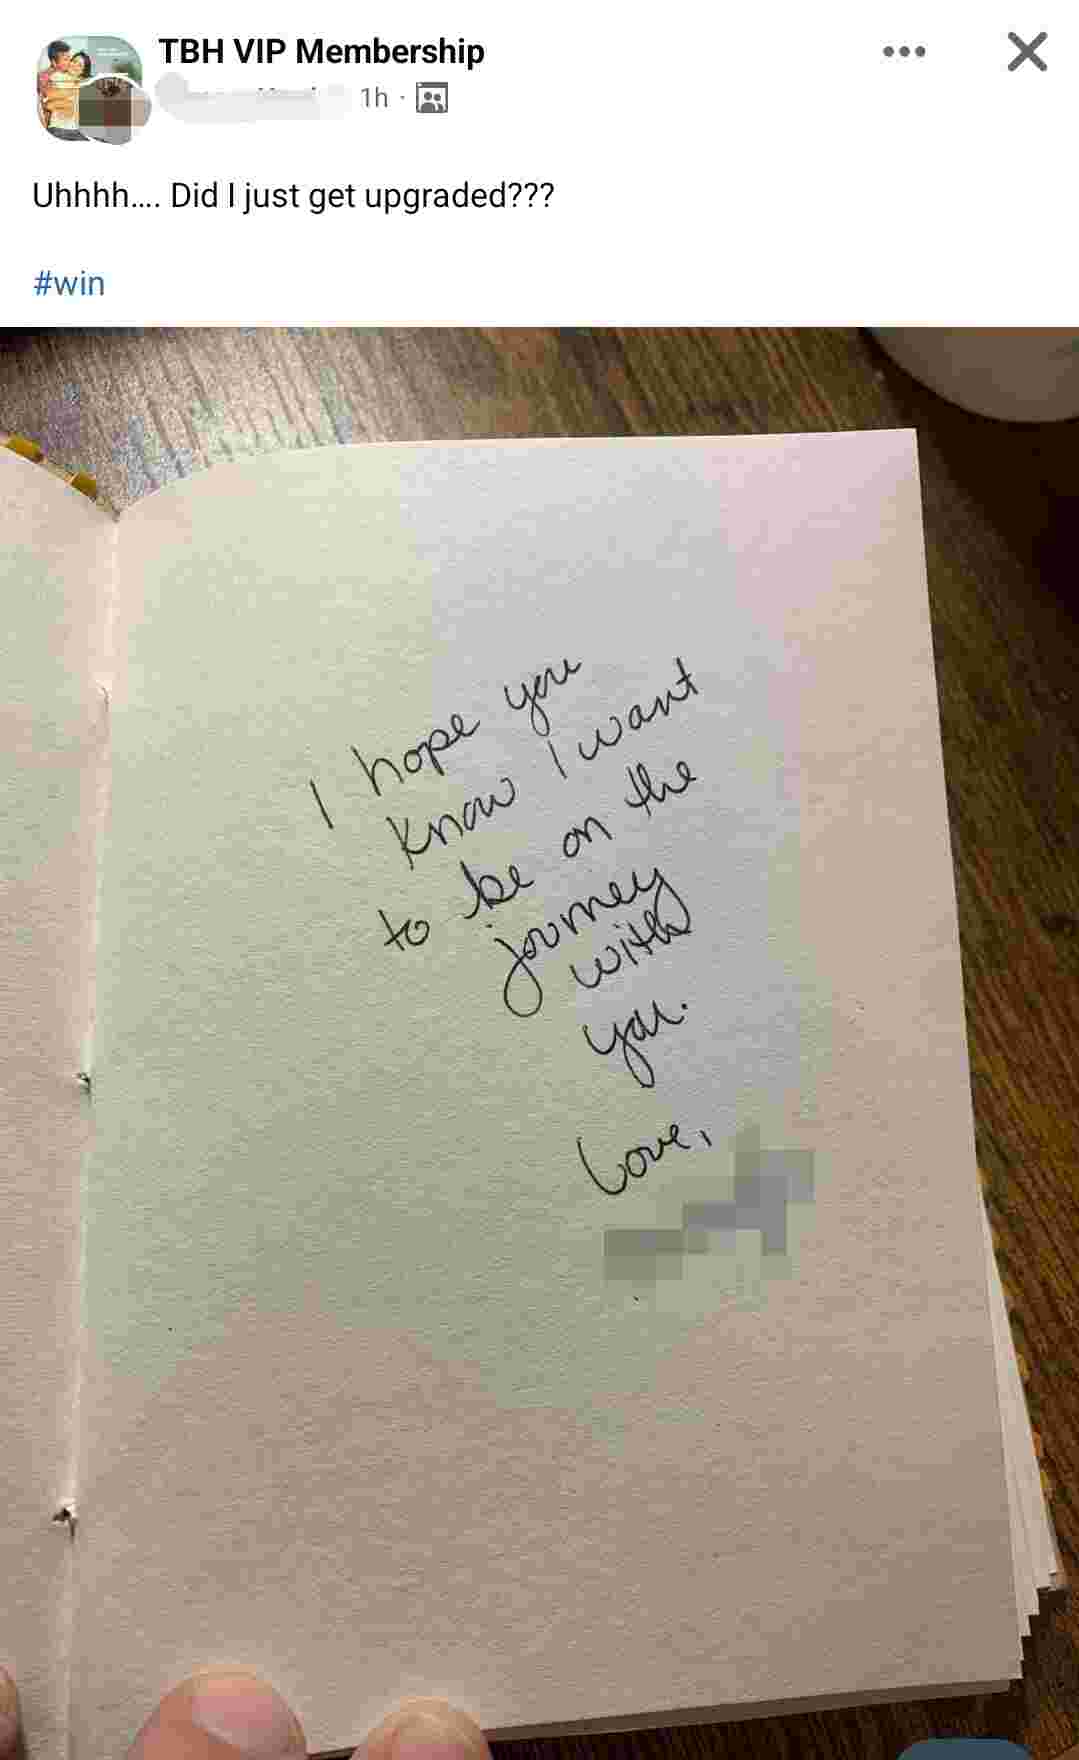 TBH VIP Membership
1h ·
Uhhhh.... Did I just get upgraded???
#win
I hope you
know I want
to be on the
journey
with
you.
Love,